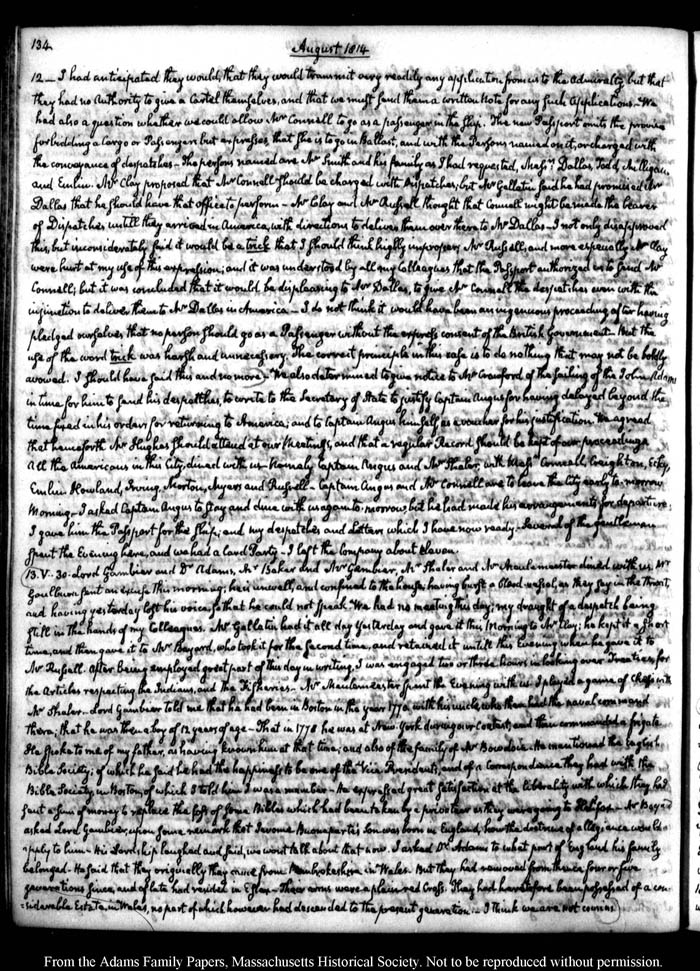 134
August 1814
12 — I had anticipated they would, that they would transmit very readily any application from us to the Admiralty but that
they had no Authority to give a Cartel themselves, and that we must send them a written Note for any such Applications. We
had also a question whether we could allow Mr Connell to go as a passenger in the Ship. The new Passport omits the proviso
forbidding a cargo or Passengers but expresses that she is to go in Ballast, and with the Persons named on it, or charged with
the conveyance of despatches — The persons named are Mr Smith and his family as I had requested, Messrs Dallas, Todd, Milligan,
and Emlin. Mr Clay proposed that Mr Connell should be charged with Dispatches; but Mr Gallatin said he had promised Mr
Dallas that he should have that office to perform — Mr Clay and Mr Russell thought that Connell might be made the bearer
of Dispatches untill they arrived in America, with directions to deliver them over there to Mr Dallas — I not only disapproved
this, but inconsiderately said it would be a trick that I should think highly improper. Mr Russell, and more especially Mr Clay
were hurt at my use of this expression; and it was understood by all my Colleagues that the Passport authorized us to send Mr
Connell; but it was concluded that it would be displeasing to Mr Dallas, to give Mr Connell the despatches even with the
injunction to deliver them to Mr Dallas in America — I do not think it would have been an ingenuous proceeding after having
pledged ourselves that no person should go as a Passenger without the express consent of the British Government — But the
use of the word trick was harsh and unnecessary. The correct principle in this case is to do nothing that may not be boldly
avowed. I should have said this and no more — We also determined to give notice to Mr Crawford of the sailing of the John Adams
in time for him to send his despatches, to write to the Secretary of State to justify Captain Angus for having delayed beyond the
time fixed in his orders for returning to America; and to Captain Angus himself as a voucher for his justification. We agreed
that henceforth Mr Hughes should attend at our Meetings, and that a regular Record should be kept of our proceedings
All the Americans in this City, dined with us — Namely Captain Angus and Mr Shaler, with Messrs Connell, Creighton,
Emlin Howland, Irving, Morton, Myers and Russell — Captain Angus and Mr Connell are to leave the City early to-morrow
Morning. I asked Captain Angus to stay and dine with us again to-morrow, but he had made his arrangements for departure.
I gave him the Passport for the Ship; and my despatches and Letters which I have now ready. Several of the gentlemen
spent the Evening here, and we had a Card Party — I left the company about eleven.
13. V. 30 — Lord Gambier and Dr Adams, Mr Baker and Mr Gambier, Mr Shaler and Mr Meulemeester dined with us. Mr
Goulburn sent an excuse this morning; he is unwell, and confined to the house, having burst a blood-vessel, as they say in the Throat,
and having yesterday lost his voice, so that he could not speak. We had no meeting this day; my draught of a despatch being
still in the hands of my Colleagues. Mr Gallatin had it all day Yesterday and gave it this Morning to Mr Clay; he kept it a short
time, and then gave it to Mr Bayard, who took it for the second time, and retained it untill this Evening when he gave it to
Mr Russell. After being employed great part of this day in writing, I was engaged two or three hours in looking over Treaties, for
the Articles respecting the Indians, and the Fisheries — Mr Meulemeester spent the Evening with us. I played a game of Chess with
Mr Shaler. Lord Gambier told me that he had been in Boston in the year 1770 with his uncle, who then had the naval command
there; that he was then a boy of 12 years of age — That in 1778 he was at New-York during our Contest, and then commanded a frigate.
He spoke to me of my father, as having known him at that time; and also of the family of Mr Bowdoin. He mentioned the English
Bible Society; of which he said he had the happiness to be one of the Vice Presidents, and of a Correspondence they had with the
Bible Society in Boston, of which I told him I was a member — He expressed great satisfaction at the liberality with which they had
sent a sum of money to replace the loss of some Bibles which had been taken by a privateer as they were going to Halifax. Mr Bayard
asked Lord Gambier, upon some remark that Jerome Buonaparte's Son was born in England, how the doctrine of allegiance would
apply to him — His Lordship laughed and said, we wont talk about that now. I asked Dr Adams to what part of England his family
belonged. He said that they originally they came from Pembrokeshire in Wales. But they had removed from thence four or five
generations since, and of late had resided in Essex. Their arms were a plain red Cross. They had heretofore been possessed of a con-
siderable Estate, in Wales, no part of which however had descended to the present generation — I think we are not cousins
From the Adams Family Papers, Massachusetts Historical Society. Not to be reproduced without permission.